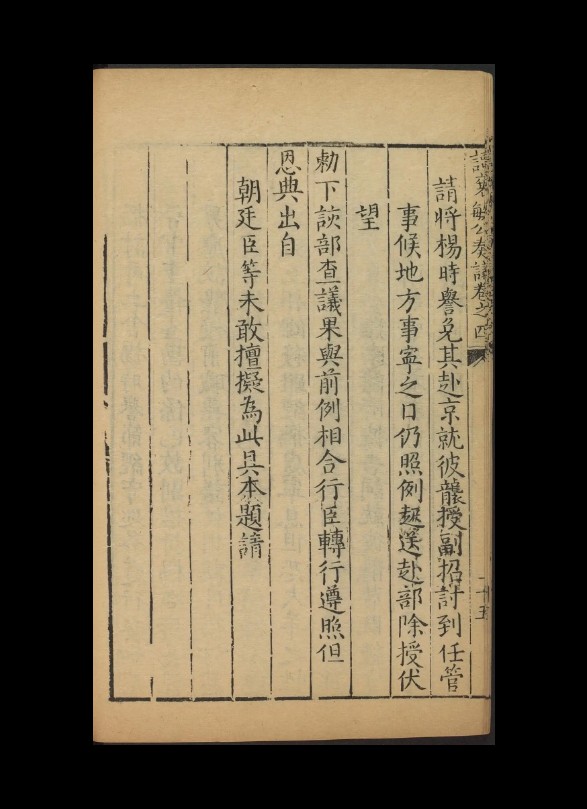 譚襄敏公奏議卷之四
二十五
請將楊時譽免其赴京就彼襲授副招討到任管
事候地方事寧之日仍照例起送赴部除授伏
望
勅下該部查議果與前例相合行臣轉行遵照但
恩典出自
朝廷臣等未敢擅擬為此具本題請